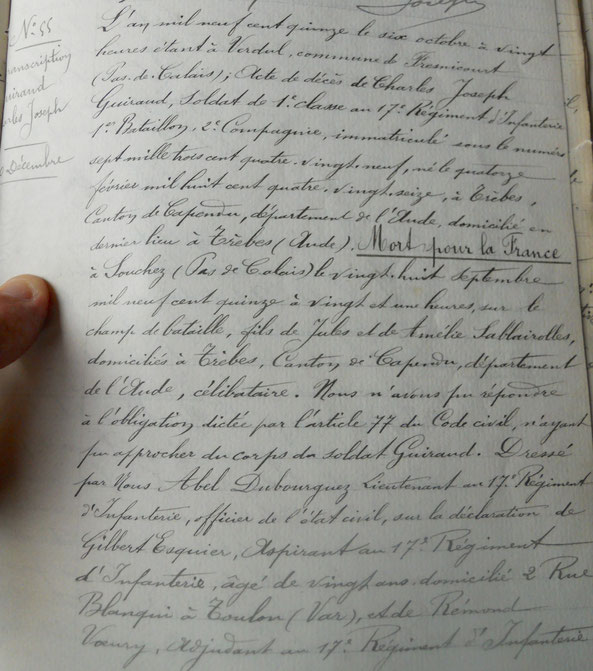 N° 55
L'an mil neuf cent quinze le six octobre à vingt
heures étant à Verdul, commune de Fresnicourt
(Pas-de-Calais); Acte de décès de Charles Joseph
Guiraud, Soldat de 1e classe au 17e Régiment d'Infanterie
1er Bataillon, 2e Compagnie, immatriculé sous le numéro
sept mille trois cent quatre-vingt-neuf, né le quatorze
février mil huit cent quatre-vingt-seize, à Trèbes,
Canton de Capendu, département de l'Aude, domicilié en
dernier lieu à Trèbes (Aude). Mort pour la France
à Souchez (Pas de Calais) le vingt-huit septembre
mil neuf cent quinze à vingt et une heures, sur le
champ de bataille, fils de Jules et de Amélie Sablairolles,
domiciliés à Trèbes, Canton de Capendu, département
de l'Aude, célibataire. Nous n'avons pu répondre
à l'obligation dictée par l'article 77 du Code civil, n'ayant
pu approcher du corps du soldat Guiraud. Dressé
par Nous Abel Dubourguez Lieutenant au 17e Régiment
d'Infanterie, officier de l'état civil, sur la déclaration de
Gilbert Esquier, Aspirant au 17e Régiment
d'Infanterie, âgé de vingt ans domicilié 2 Rue
Blanqui à Toulon (Var), et de Rémond
Vœury, Adjudant au 17e Régiment d'Infanterie
transcription
Guiraud
Charles Joseph
Décembre